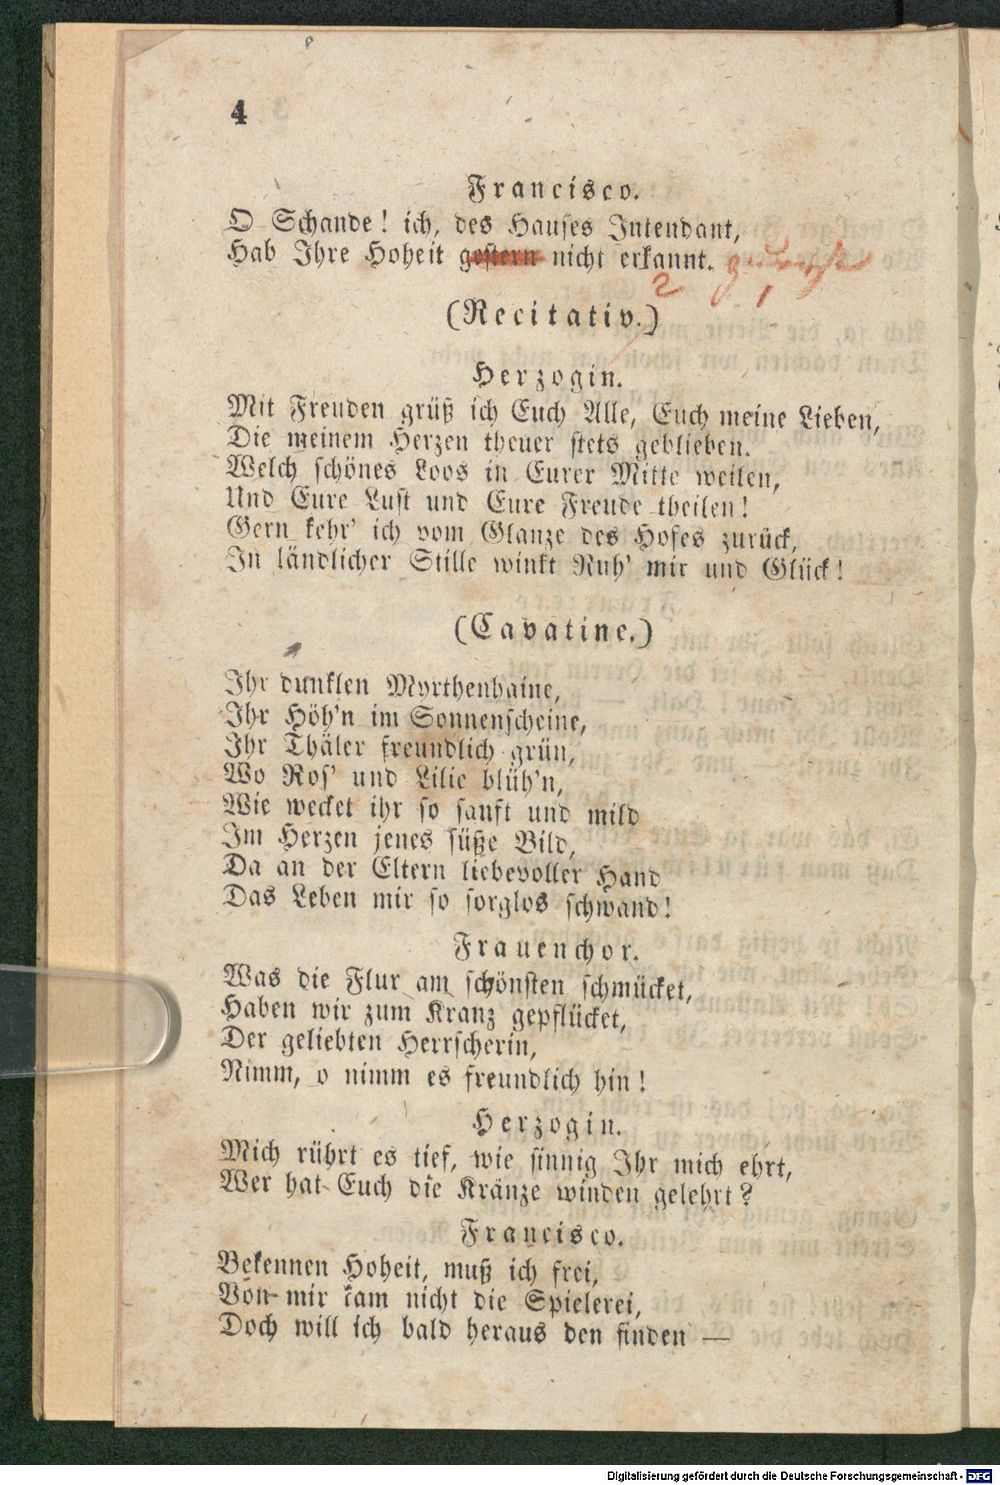 4
Francisco.
O Schande! ich, des Hauses Intendant,
Hab Ihre Hoheit gestern nicht erkannt.
2 1
(Recitativ.)
Herzogin.
Mit Freuden grüß ich Euch Alle, Euch meine Lieben,
Die meinem Herzen theuer stets geblieben.
Welch schönes Loos in Eurer Mitte weilen,
Und Eure Lust und Eure Freude theilen!
Gern kehr' ich vom Glanze des Hofes zurück,
In ländlicher Stille winkt Ruh' mir und Glück!
(Cavatine.)
Ihr dunklen Myrthenhaine,
Ihr Höh'n im Sonnenscheine,
Ihr Thäler freundlich grün,
Wo Ros' und Lilie blüh'n,
Wie wecket ihr so sanft und mild
Im Herzen jenes süße Bild,
Da an der Eltern liebevoller Hand
Das Leben mir so sorglos schwand!
Frauenchor.
Was die Flur am schönsten schmücket,
Haben wir zum Kranz gepflücket,
Der geliebten Herrscherin,
Nimm, o nimm es freundlich hin!
Herzogin.
Mich rührt es tief, wie sinnig Ihr mich ehrt,
Wer hat Euch die Kränze winden gelehrt?
Francisco.
Bekennen Hoheit, muß ich frei,
Von mir kam nicht die Spielerei,
Doch will ich bald heraus den finden —
Digitalisierung gefördert durch die Deutsche Forschungsgemeinschaft - DFG